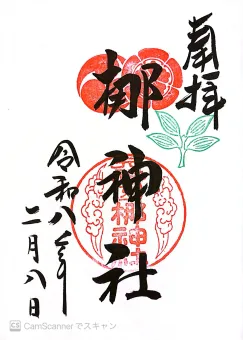 奉拝
梛神社
令和八年
二月八日
CS CamScanner でスキャン